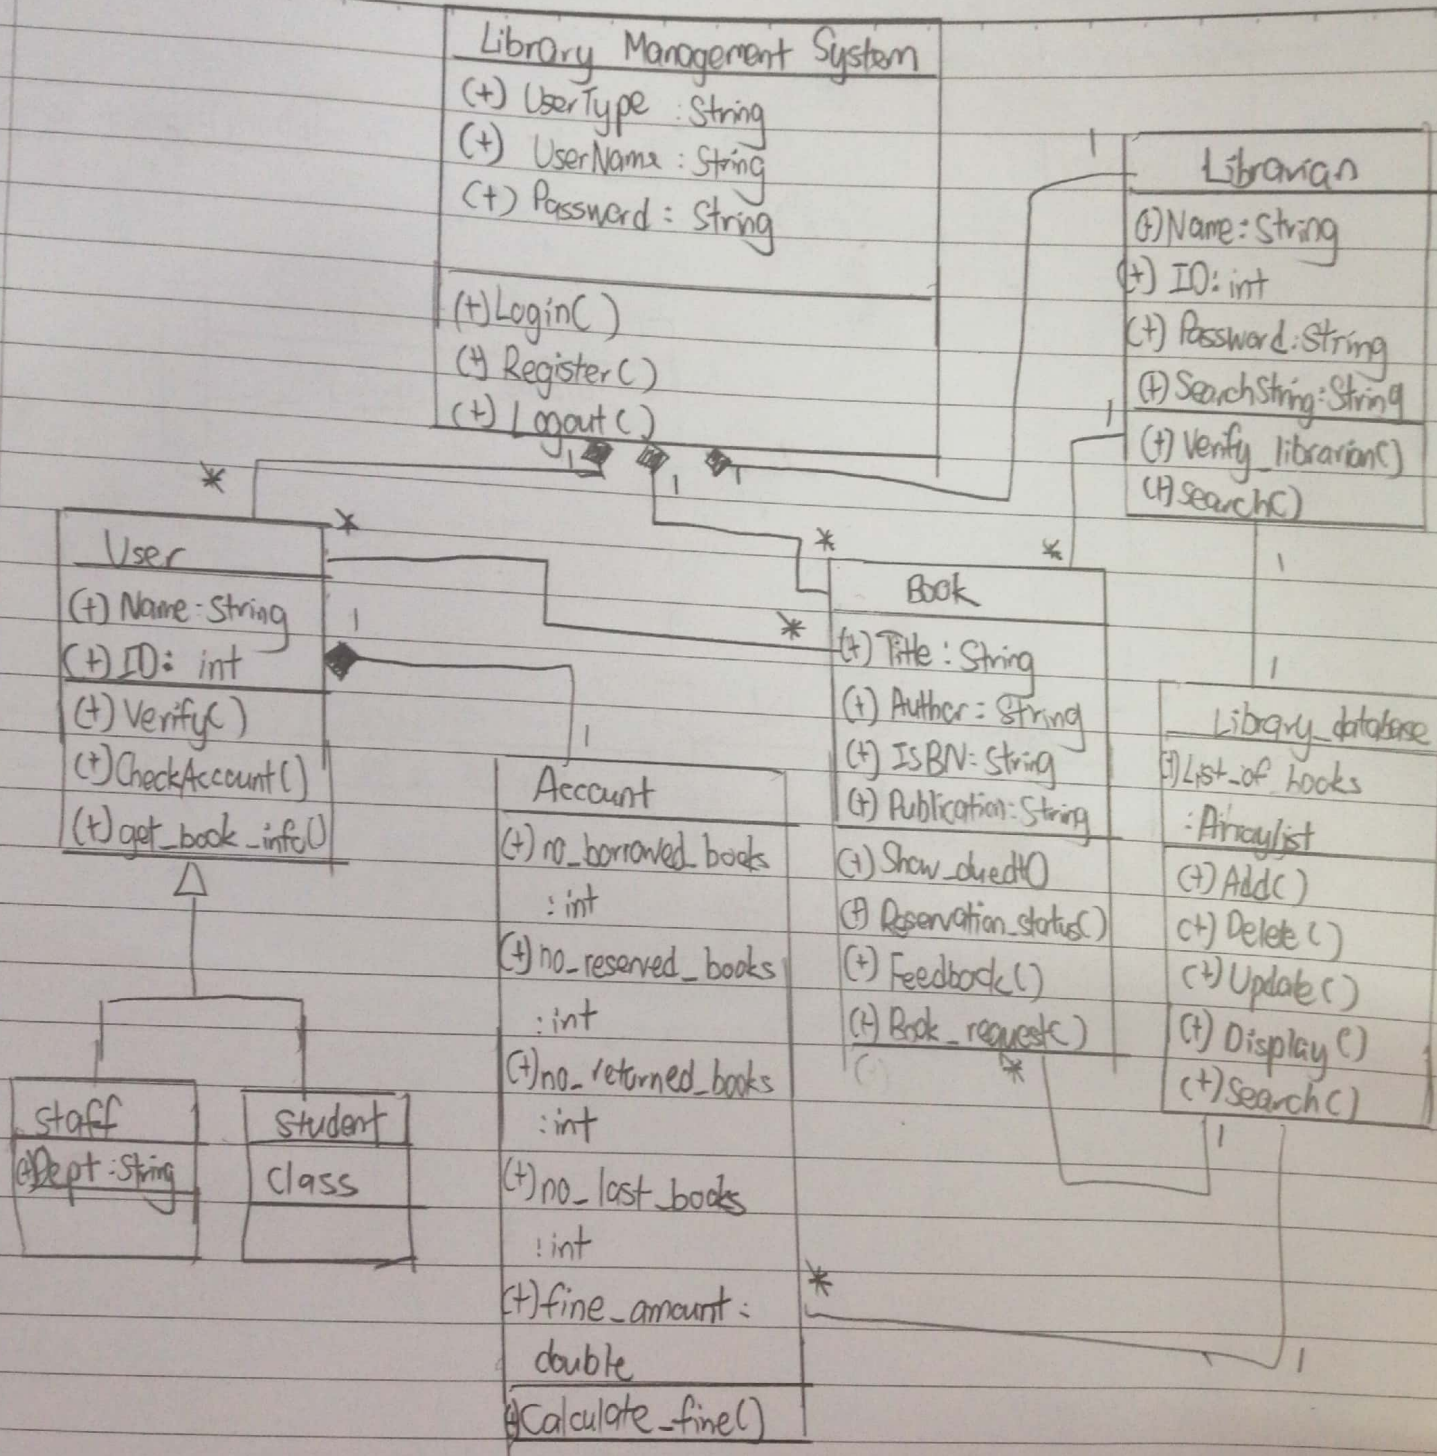 Library Management System
(+) UserType : String
(+) UserName : String
(+) Password : String
(+) Login()
(+) Register()
(+) Logout()
1
1
1
1
Librarian
(+) Name : String
(+) ID : int
(+) Password : String
(+) SearchString : String
(+) Verify_librarian()
(+) Search()
1
1
*
*
User
(+) Name : String
(+) ID : int
(+) Verify()
(+) CheckAccount()
(+) get_book_info()
1
1
*
*
*
Book
(+) Title : String
(+) Author : String
(+) ISBN : String
(+) Publication : String
(+) Show_duedt()
(+) Reservation_status()
(+) Feedback()
(+) Book_request()
*
1
Library_database
(+) List_of_books
: Arraylist
(+) Add()
(+) Delete()
(+) Update()
(+) Display()
(+) Search()
1
Account
(+) no_borrowed_books
: int
(+) no_reserved_books
: int
(+) no_returned_books
: int
(+) no_lost_books
: int
(+) fine_amount :
double
(+) Calculate_fine()
*
1
Staff
(+) Dept : String
Student
Class